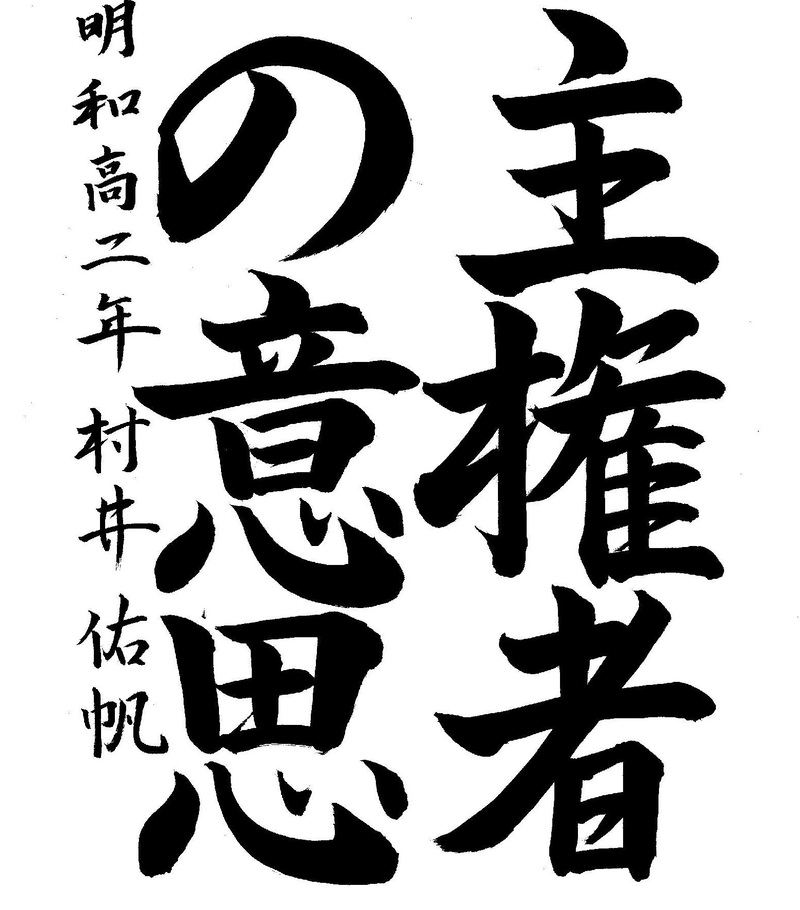 主権者
の意思
明和高二年 村井 佑帆